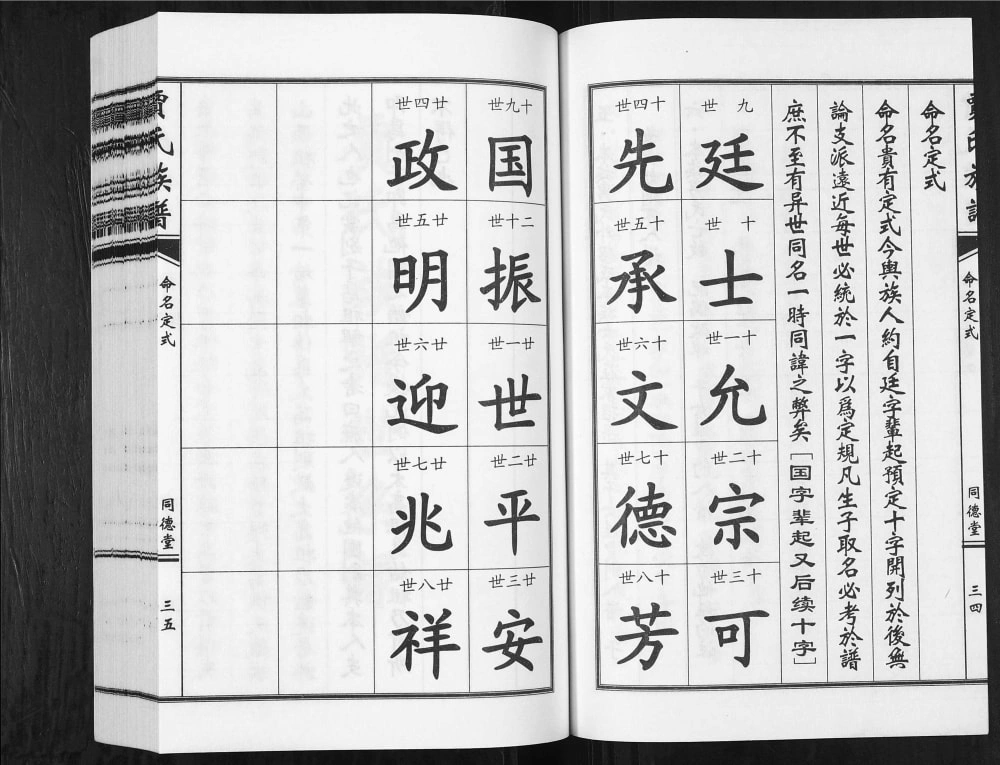 賈氏族譜
命名定式
同德堂
三四
命名定式
命名貴有定式今與族人約自廷字輩起預定十字開列於後無
論支派遠近每世必統於一字以爲定規凡生子取名必考於譜
庶不至有异世同名一時同諱之弊矣[国字輩起又后续十字]
九世
廷
十世
士
十一世
允
十二世
宗
十三世
可
十四世
先
十五世
承
十六世
文
十七世
德
十八世
芳
十九世
国
二十世
振
廿一世
世
廿二世
平
廿三世
安
廿四世
政
廿五世
明
廿六世
迎
廿七世
兆
廿八世
祥
賈氏族譜
命名定式
同德堂
三五